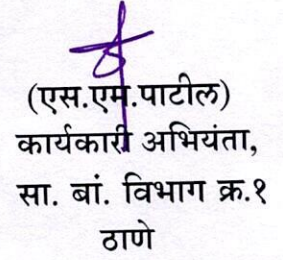 (एस.एम.पाटील)
कार्यकारी अभियंता,
सा. बां. विभाग क्र.१
ठाणे